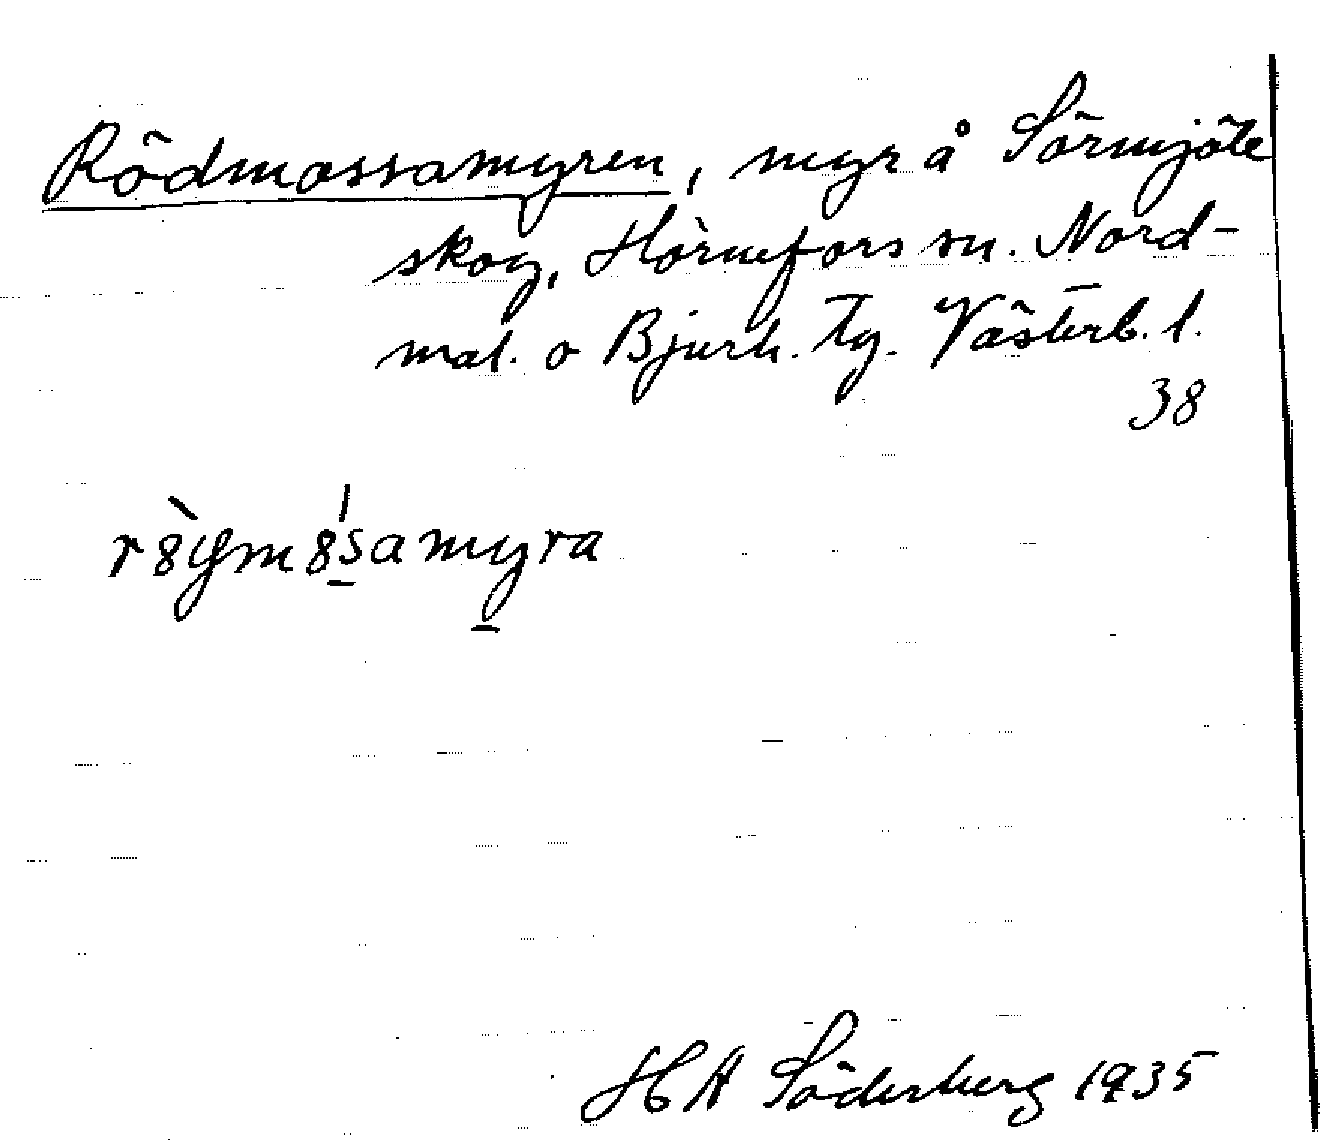 Rödmossamyren, myr å Sörmjöle
skog, Hörnefors sn. Nord-
mal. o Bjurh. tg. Västerb. l.
38
HA Söderberg 1935